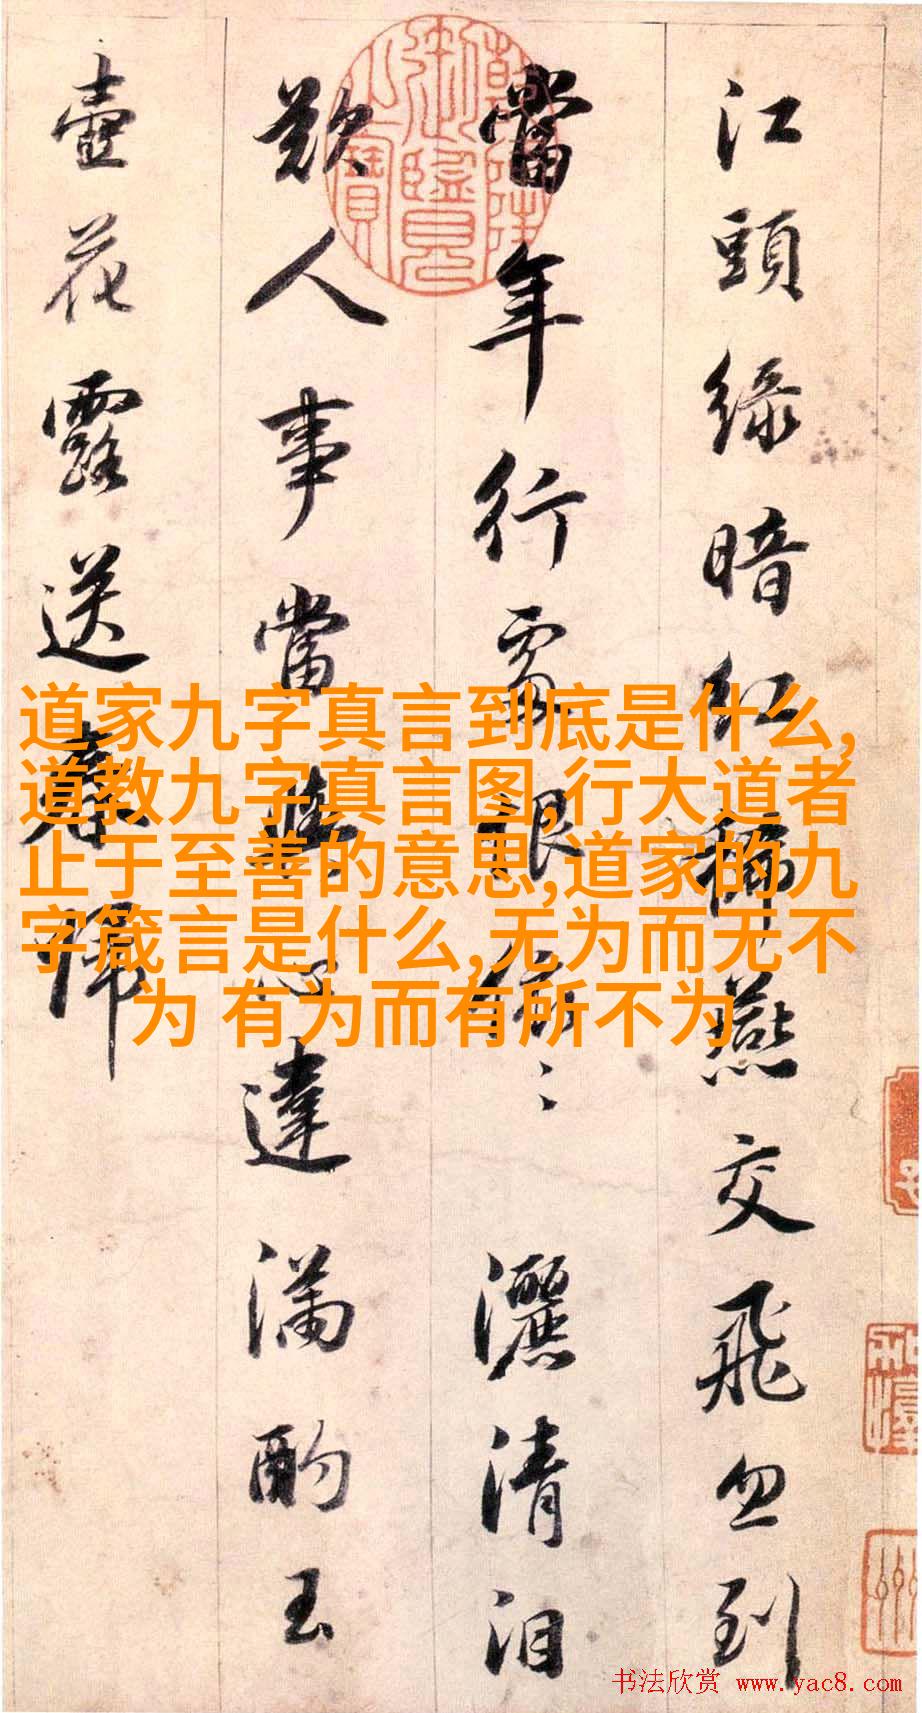 江頭綠暗紅稀燕交飛忽到
當年行處恨依〻灑清泪
歎人事當與心違滿酌玉
壺花露送春歸
乾隆御覽之寶
道家九字真言到底是什么,
道教九字真言图,行大道者
止于至善的意思,道家的九
字箴言是什么,无为而无不
为 有为而有所不为
书法欣赏 www.yac8.com